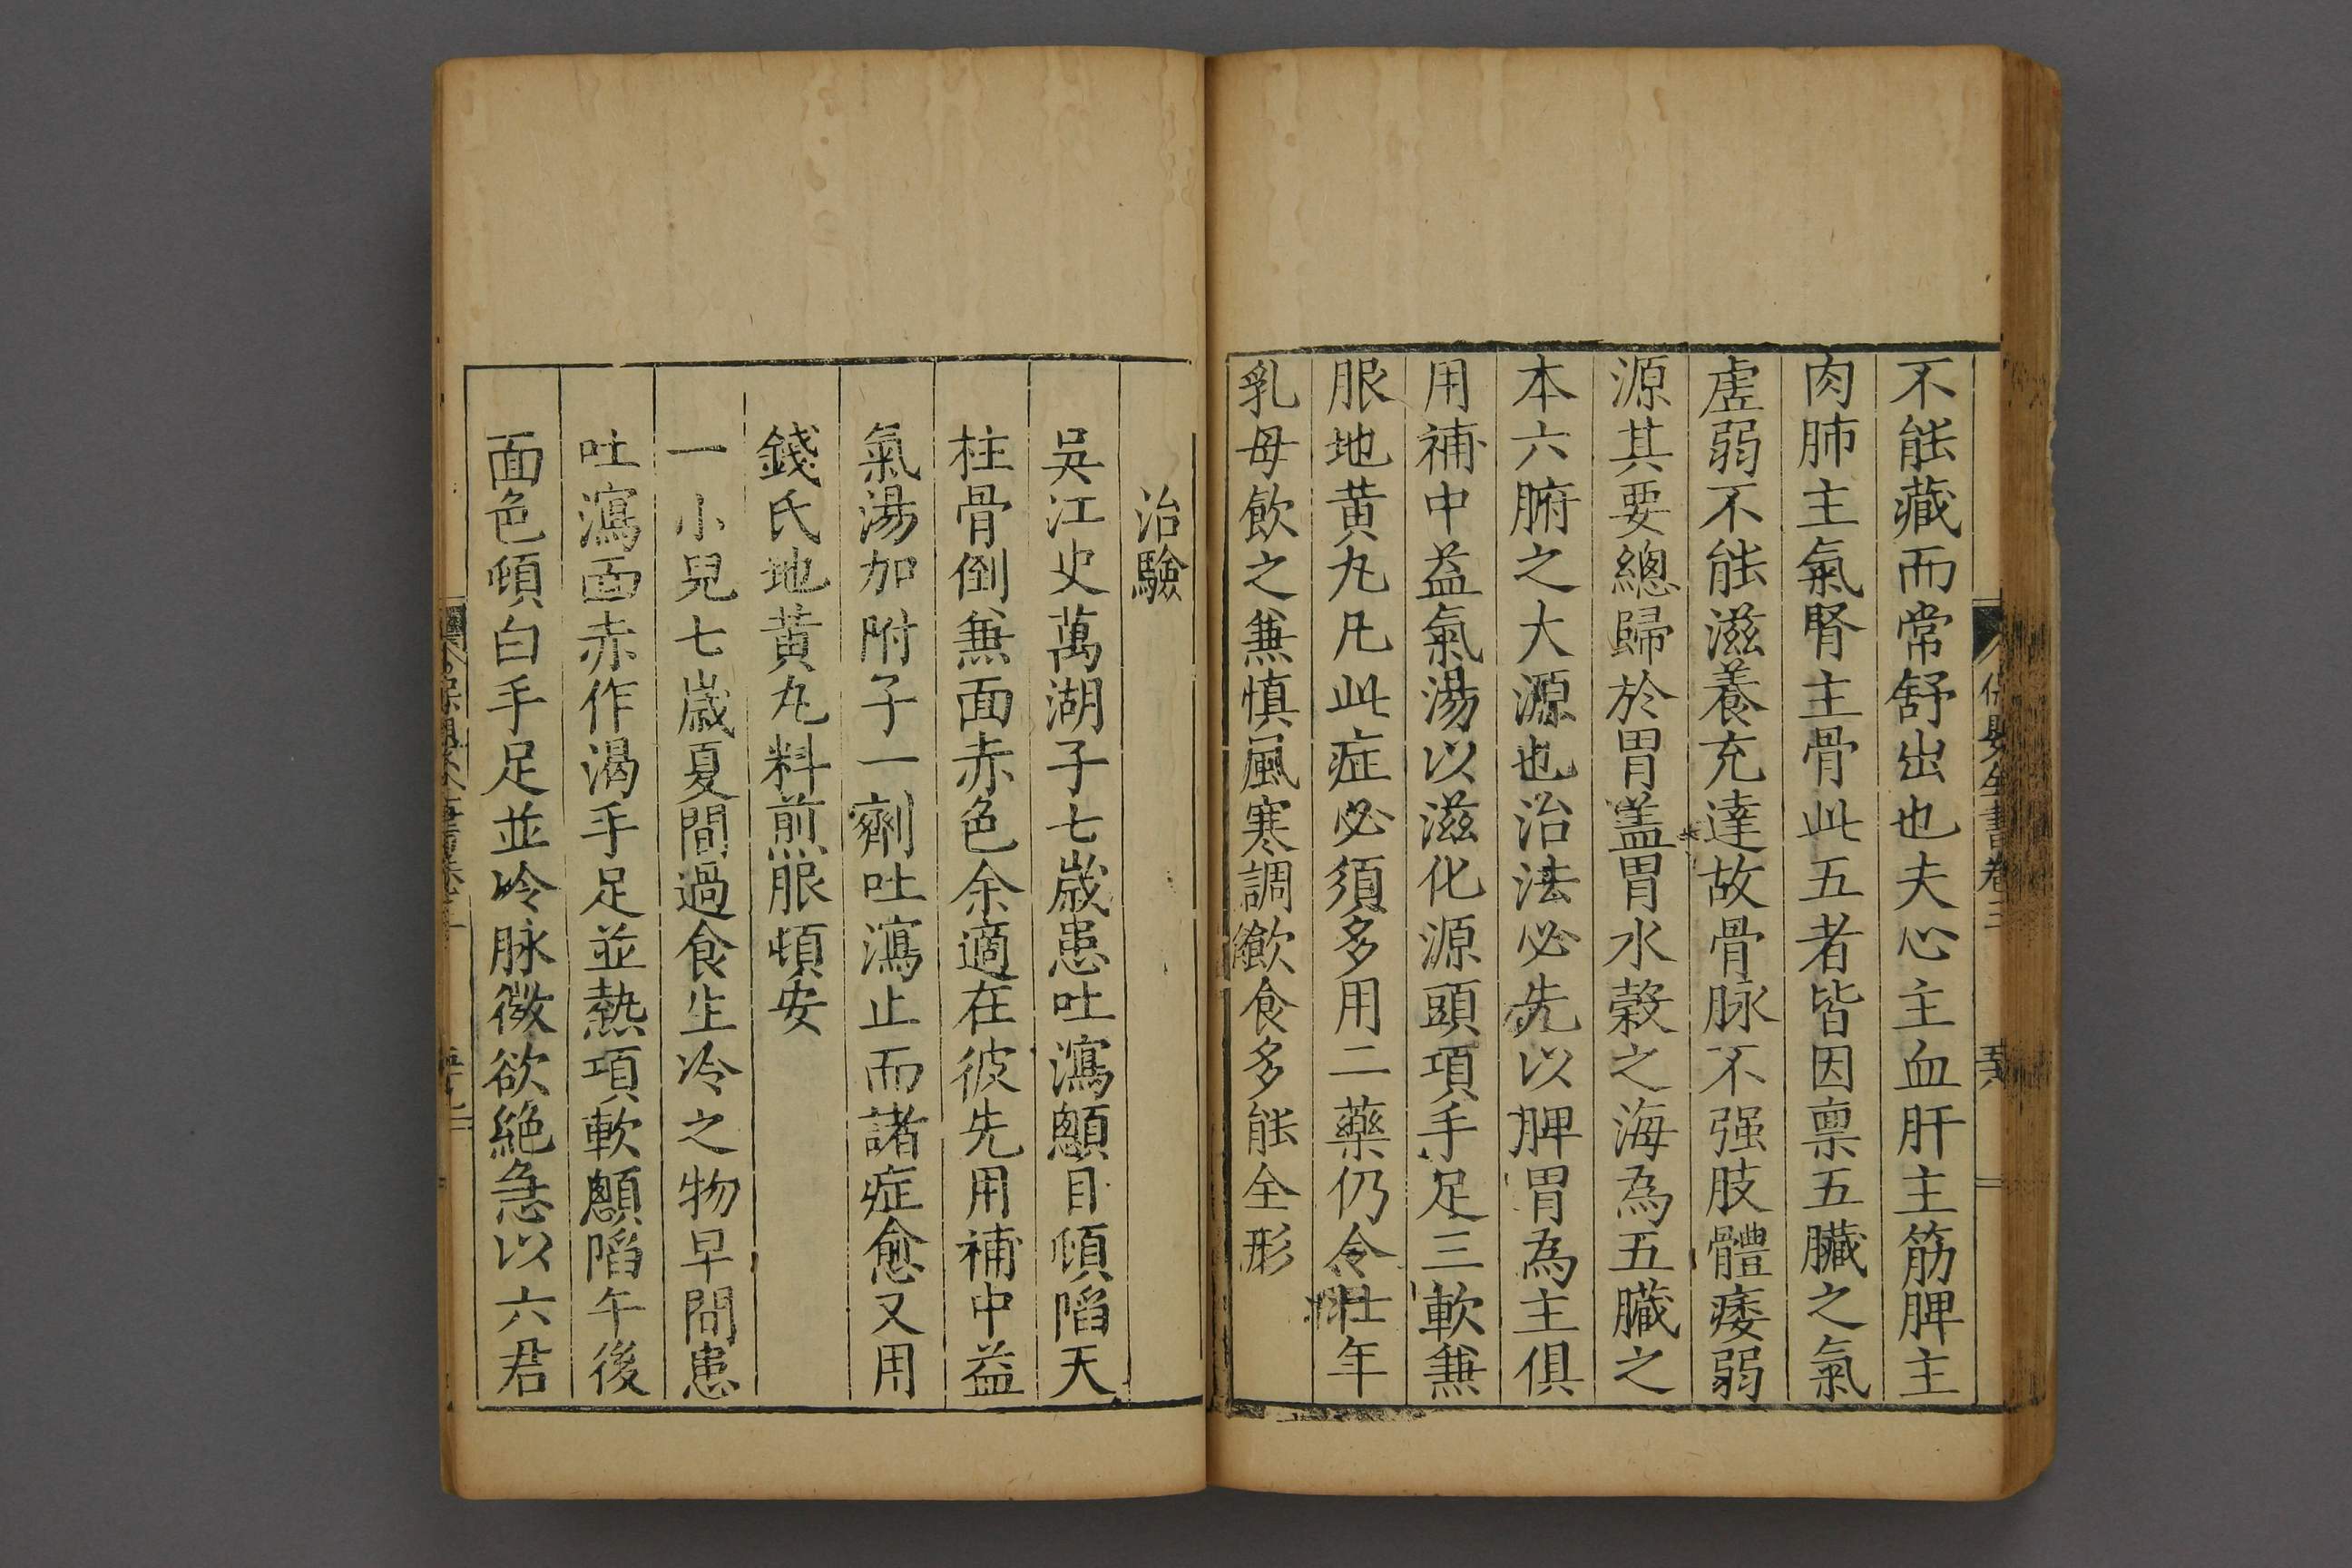 不能藏而常舒出也夫心主血肝主筋脾主
肉肺主氣腎主骨此五者皆因禀五臟之氣
虛弱不能滋養充達故骨脉不强肢體痿弱
源其要總歸於胃盖胃水穀之海為五臟之
本六腑之大源也治法必先以脾胃為主俱
用補中益氣湯以滋化源頭項手足三軟兼
服地黄丸凡此症必須多用二藥仍令壯年
乳母飲之兼慎風寒調飲食多能全形
治驗
吳江史萬湖子七歲患吐瀉顖目頓陷天
柱骨倒兼面赤色余適在彼先用補中益
氣湯加附子一劑吐瀉止而諸症愈又用
錢氏地黄丸料煎服頓安
一小兒七歲夏間過食生冷之物早間患
吐瀉面赤作渴手足並熱項軟顖陷午後
面色頓白手足並冷脉微欲絶急以六君